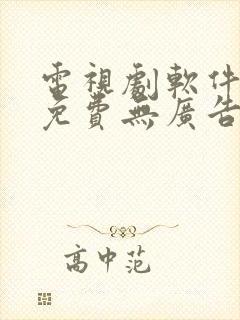 電視劇軟件
免費無廣告
高中范